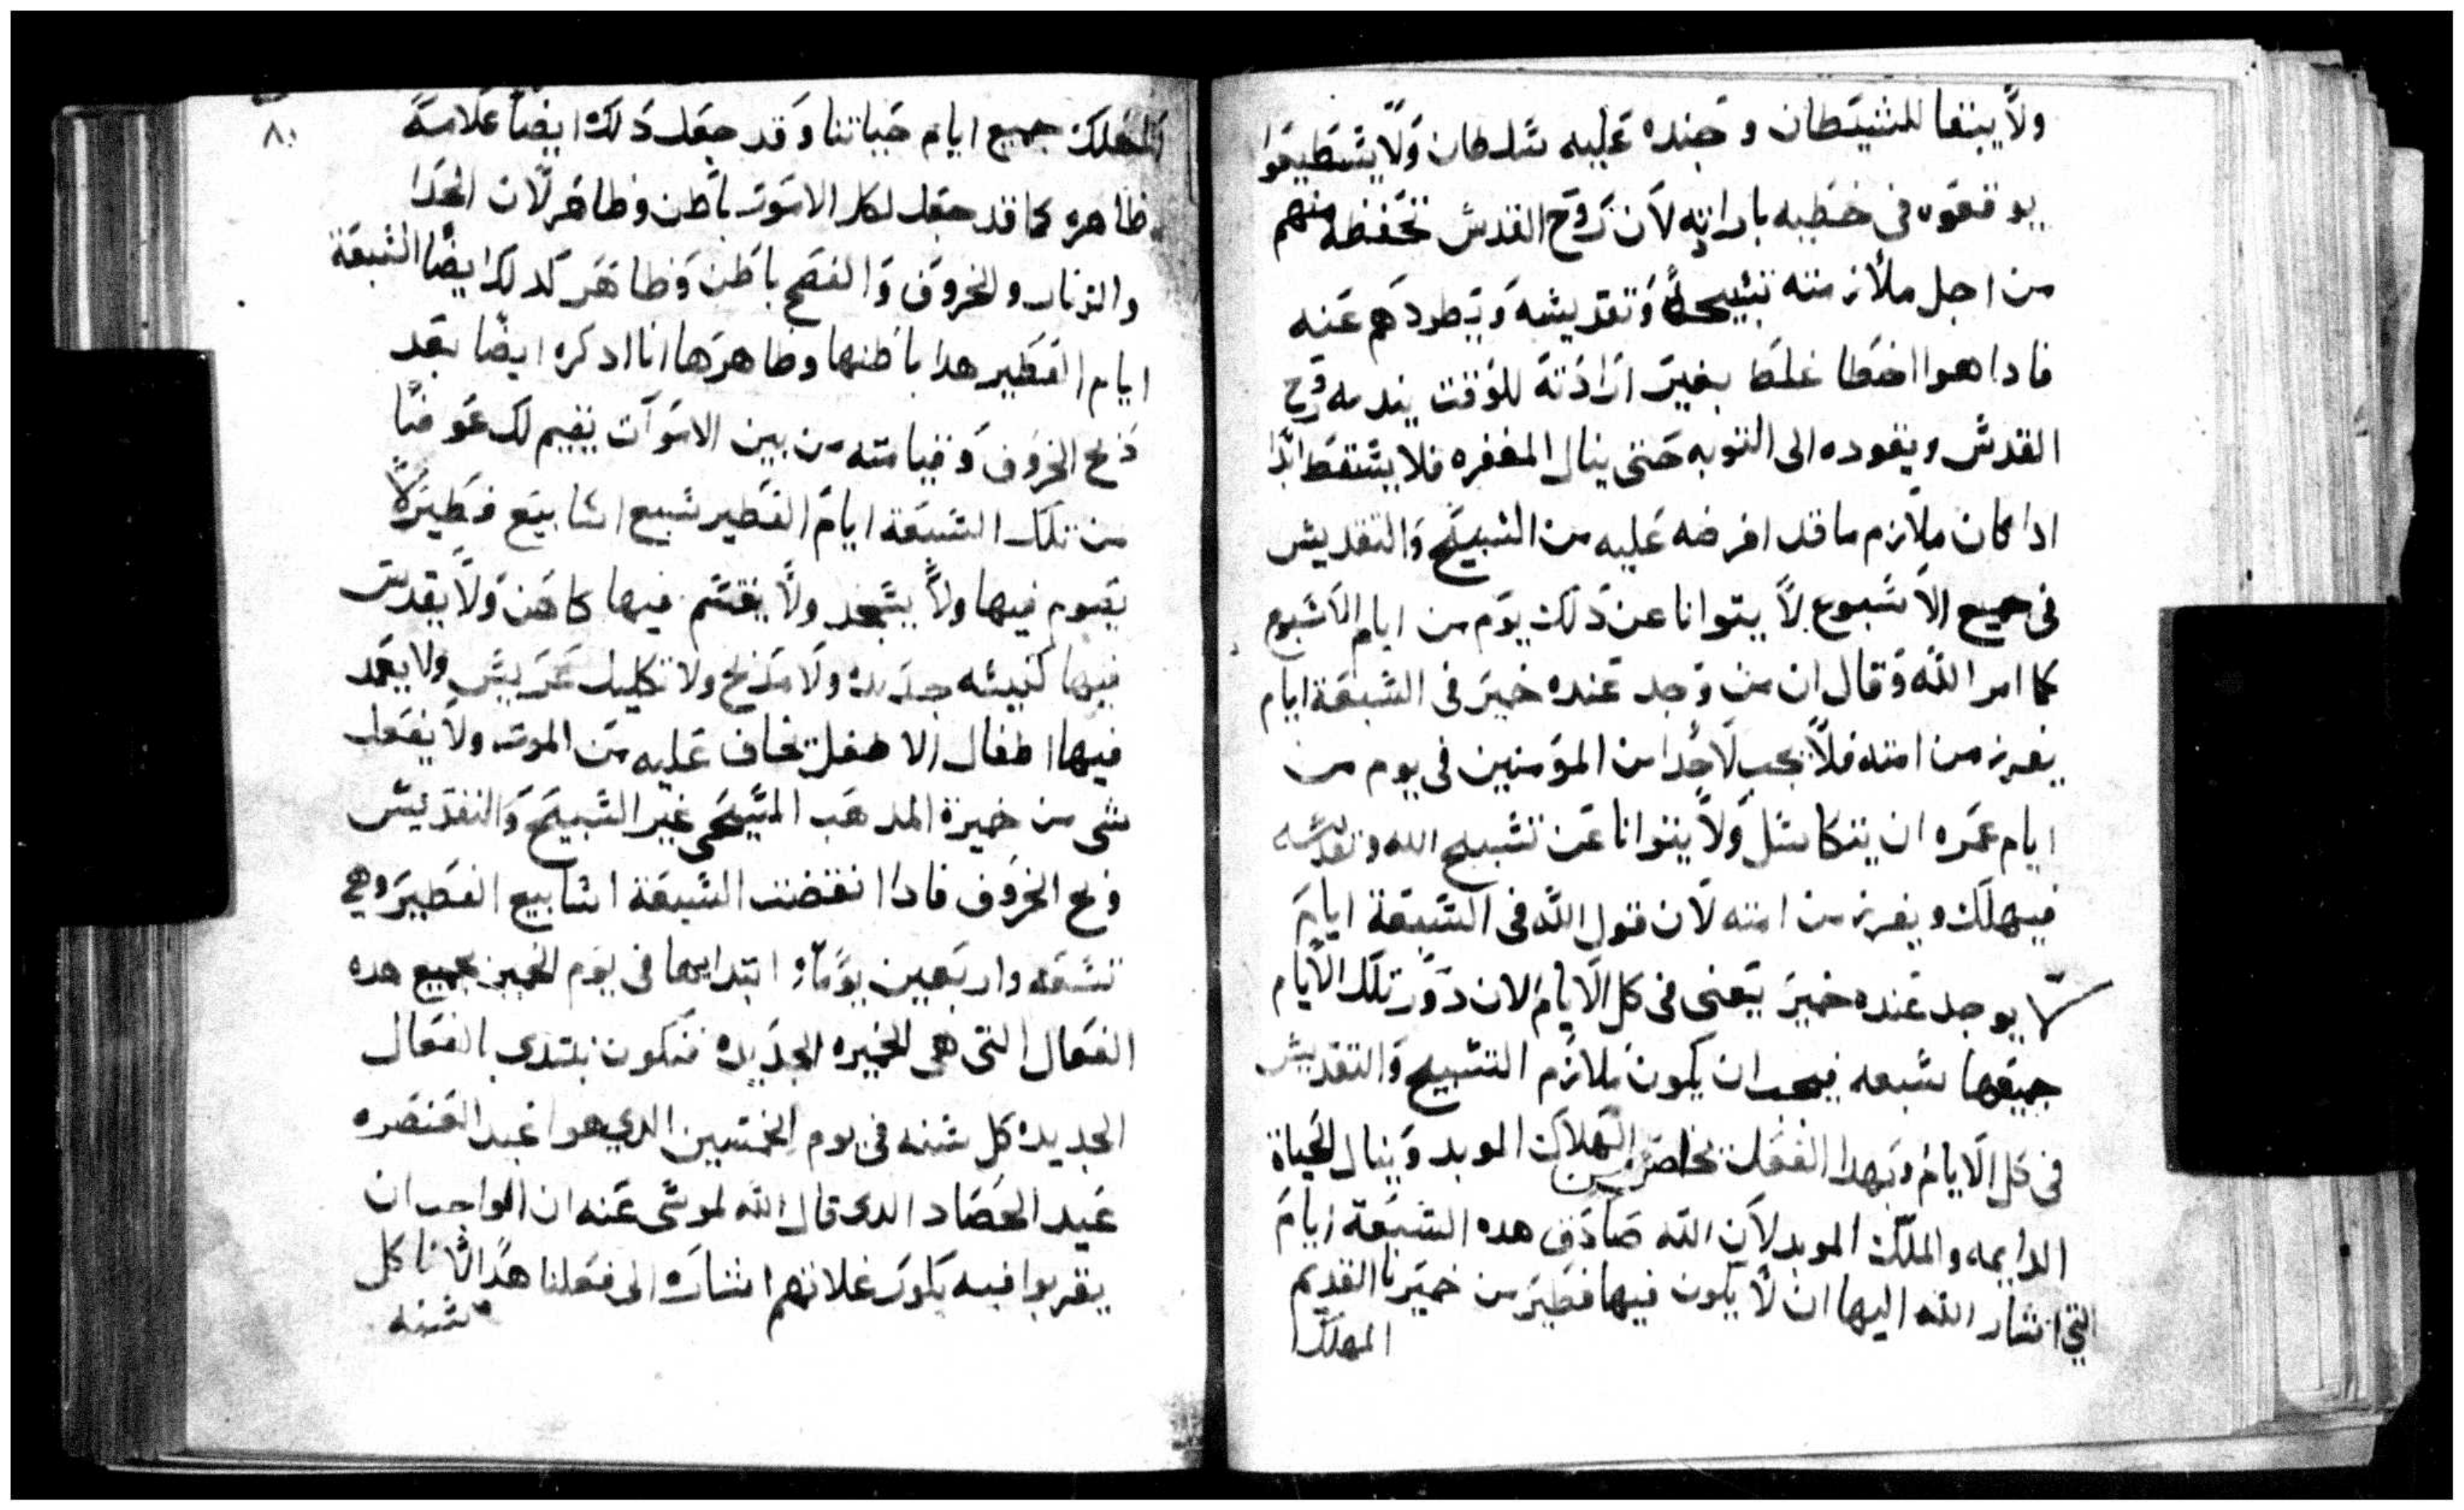 ولا يبقا للشيطان وجنده عليه سلطان ولا يستطيعوا
يوقعوه في خطيه بارادته لان روح القدس تحفظه منهم
من اجل ملازمته تسبيحه وتقديسه ويطردهم عنه
فادا هوا اخطا غلط بغير ارادته للوقت يندمه روح
القدس ويقوده الى التوبه حتى ينال المغفره فلا يسقط ابدا
ادا كان ملازم ما قد افرضه عليه من التسبيح والتقديس
في جميع الاسبوع لا يتوانا عن دلك يوم من ايام الاسبوع
كما امر الله وقال ان من وجد عنده خمير في السبعة ايام
يفرز من امته فلا يجب لاحدا من المومنين في يوم من
ايام عمره ان يتكاسل ولا يتوانا عن تسبيح الله وتقديسه
فيهلك ويفرز من امته لان قول الله في السبعة ايام
لا يوجد عنده خمير يعني في كل الايام لان دور تلك الايام
جميعها سبعه فيجب ان يكون يلازم التسبيح والتقديس
في كل الايام وبهدا الفعل يخلص من الهلاك الموبد وينال الحياة
الدايمه والملك الموبد لان الله صادق هده السبعة ايام
التي اشار الله اليها ان لا يكون فيها فطير من خميرنا القديم
المهلك
٨٠
المهلك جميع ايام حياتنا وقد جعل دلك ايضا علامة
ظاهره كما قد جعل لكل الاموت باطن وظاهر لان الحدا
والزنار والخروف والفصح باطن وظاهر كدلك ايضا السبعة
ايام الفطير هدا باطنها وظاهرها انا ادكره ايضا بعد
دبح الخروف وقيامته من بين الاموات يقيم لك عوضا
من تلك السبعة ايام الفطير سبع اسابيع فطير لا
يصوم فيها ولا يسجد ولا يقسم فيها كاهن ولا يقدس
فيها كنيسه جديده ولا مدبح ولا تكليل عريس ولا يعمد
فيها اطفال الا طفل تخاف عليه من الموت ولا يفعل
شى من خميرة المدهب المسيحي غير التسبيح والتقديس
ودبح الخروف فادا انقضت السبعة اسابيع الفطير وهي
تسعه واربعين يوما وابتدايها في يوم الخمير بجميع هده
الفعال التي هي الخميره الجديده فنكون نبتدى بالفعال
الجديده كل سنه في يوم الخمسين الدي هوا عيد العنصره
عيد الحصاد الدى قال الله لموسى عنه ان الواجب ان
يقربوا فيه بكور غلاتهم اشاره الى فعلنا هدا لاننا كل
سنه